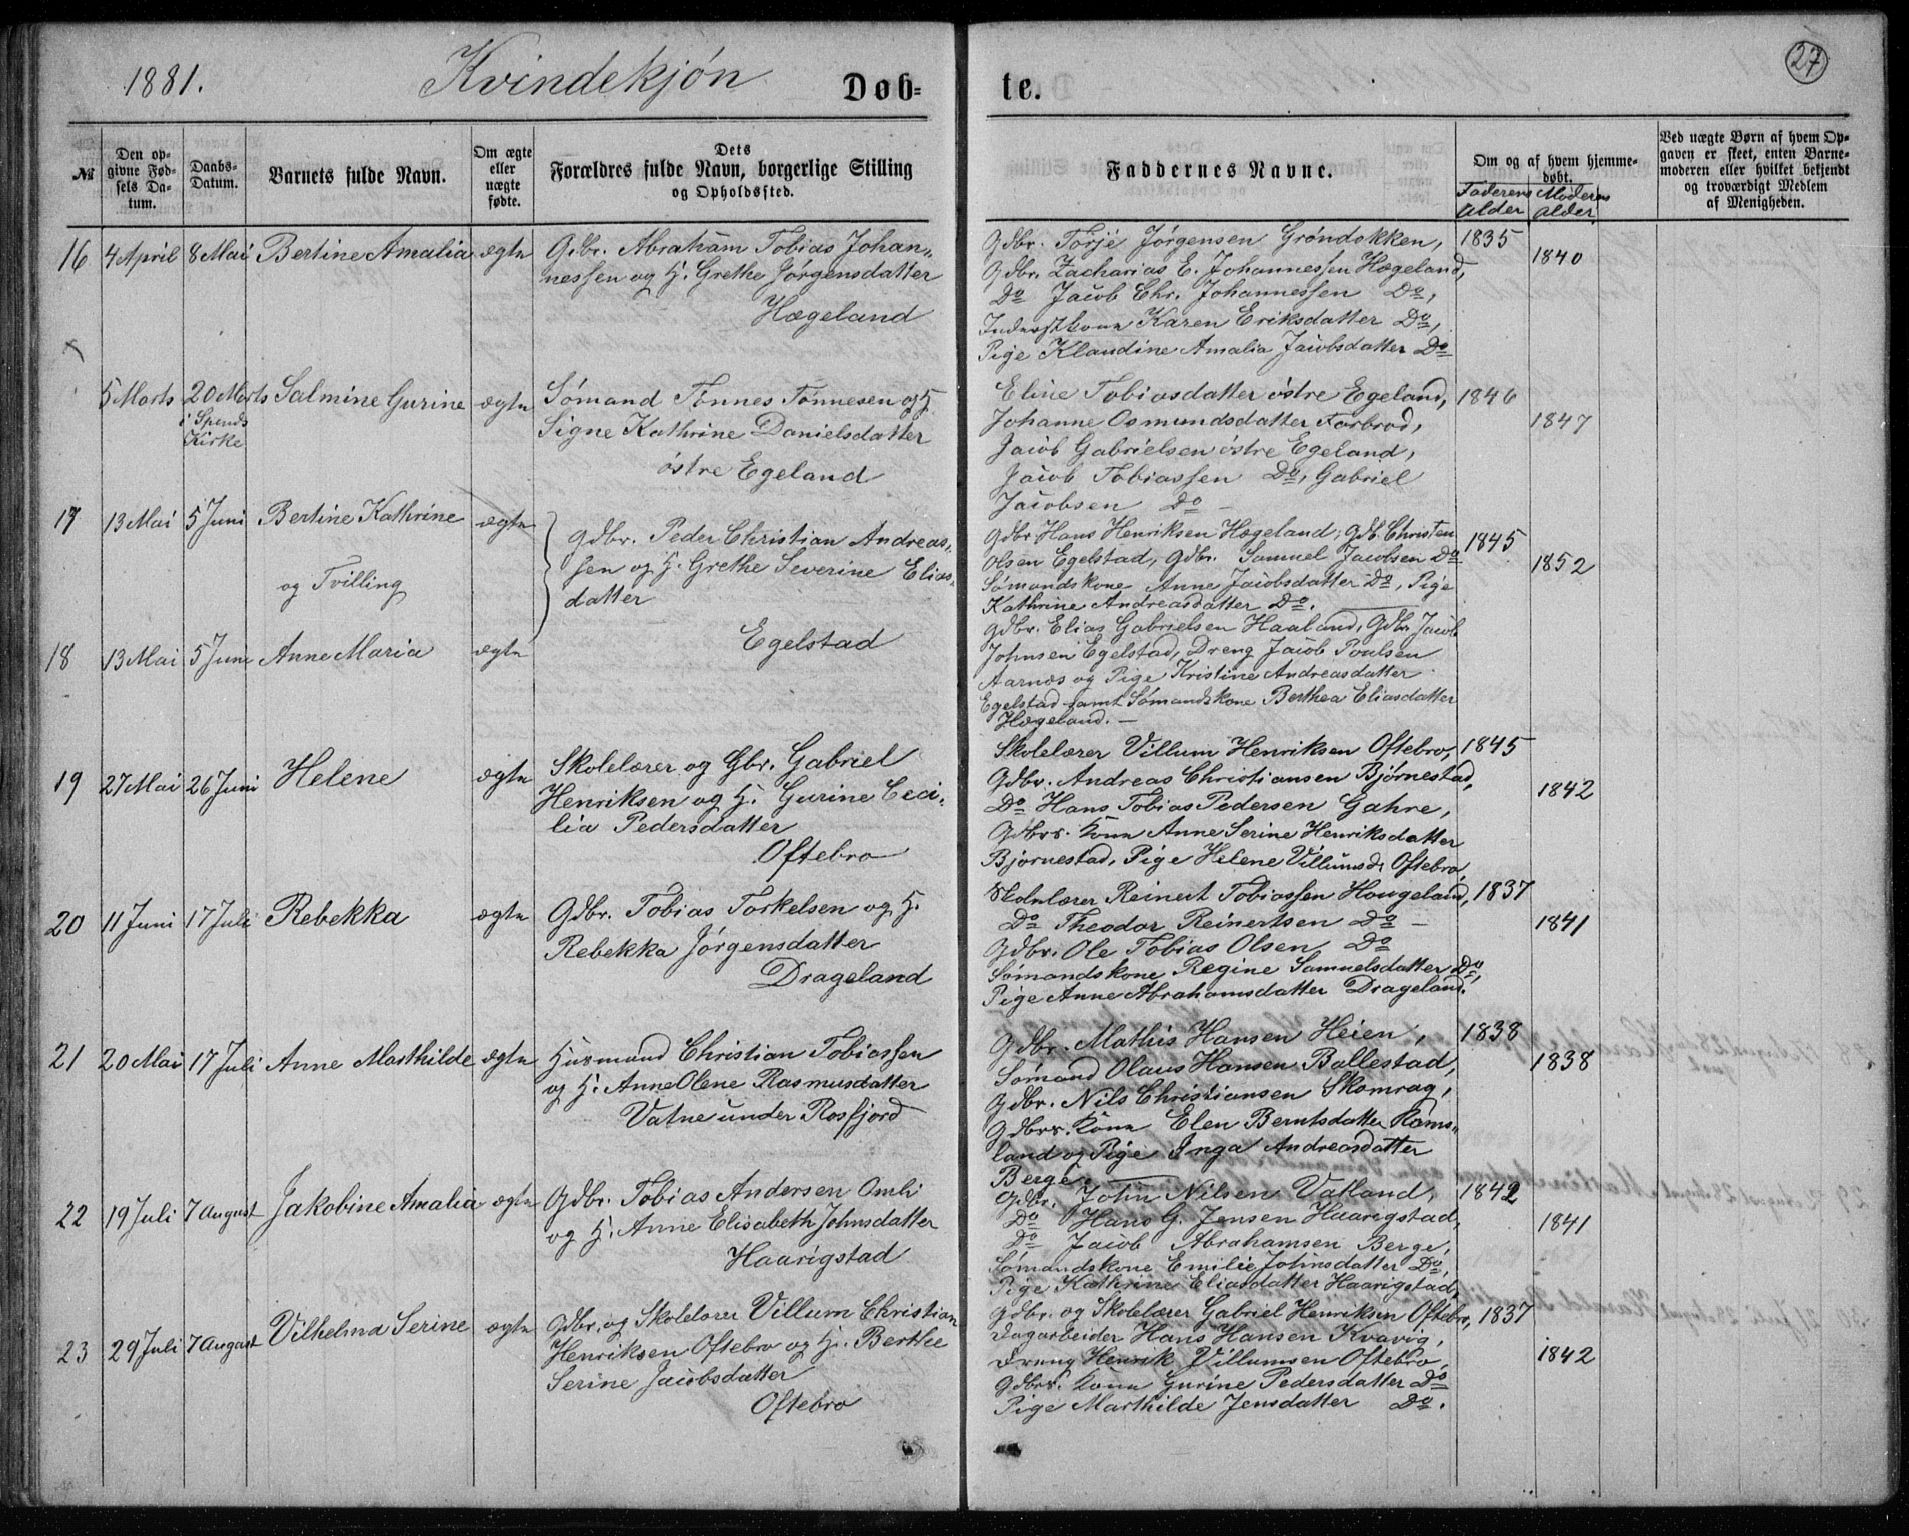 1881. Kvindekjøn Døb-
№
Den op-
givne Fød-
sels Da-
tum.
Daabs-
Datum.
Barnets fulde Navn.
Om ægte
eller
uægte
fødte.
Dets
Forældres fulde Navn, borgerlige Stilling
og Opholdssted.
16 4 April 8 Mai Bertine Amalia ægte Gdbr. Abraham Tobias Johan-
nessen og H. Grethe Jørgensdatter
Hægeland
5 Marts 20 Marts Salmine Gurine ægte Sømand Tønnes Tønnesen og H.
i Spends
Kirke
Signe Kathrine Danielsdatter
østre Egeland
17 13 Mai 5 Juni Bertine Kathrine ægte Gdbr. Peder Christian Andreas-
sen og H. Grethe Severine Elias-
og Tvilling
datter
Egelstad
18 13 Mai 5 Juni Anne Maria ægte
19 27 Mai 26 Juni Helene ægte Skolelærer og Gbr. Gabriel
Henriksen og H. Gurine Ceci-
lia Pedersdatter
Oftebro
20 11 Juni 17 Juli Rebekka ægte Gdbr. Tobias Torkelsen og H.
Rebekka Jørgensdatter
Drageland
21 20 Mai 17 Juli Anne Marthilde ægte Husmand Christian Tobiassen
og H. Anne Olene Rasmusdatter
Vatne under Rosfjord
22 19 Juli 7 August Jakobine Amalia ægte Gdbr. Tobias Andersen Omli
og H. Anne Elisabeth Johnsdatter
Haarigstad
23 29 Juli 7 August Vilhelma Serine ægte Gdbr. og Skolelærer Villum Christian
Henriksen Oftebro og H. Berthe
Serine Jacobsdatter
Oftebro
te.
27
Faddernes Navne.
Om og af hvem hjemme-
døbt.
Faderens
Alder
Moderens
Alder
Ved uægte Børn af hvem Op-
gaven er skeet, enten Barne-
moderen eller hvilket bekjendt
og troværdigt Medlem
af Menigheden.
Gdbr. Torje Jørgensen Grøndokken, 1835
Gdbr. Zacharias E. Johannessen Hægeland, 1840
Do Jacob Chr. Johannessen Do,
Inderstkone Karen Eriksdatter Do,
Pige Klaudine Amalia Jacobsdatter Do
Eline Tobiasdatter østre Egeland, 1846
Johanne Osmundsdatter Førbrod, 1847
Jacob Gabrielsen østre Egeland,
Jacob Tobiassen Do, Gabriel
Jacobsen Do
Gdbr Hans Henriksen Hægeland, Gdb. Christen 1845
Olsen Egelstad, Gdbr. Samuel Jacobsen Do 1852
Sømandskone Anne Jacobsdatter Do, Pige
Kathrine Andreasdatter Do.
Gdbr. Elias Gabrielsen Haaland, Gdbr Jacob
Johnsen Egelstad, Dreng Jacob Poulsen
Aarnæs og Pige Kristine Andreasdatter
Egelstad samt Sømandskone Berthea Eliasdatter
Hægeland.
Skolelærer Villum Henriksen Oftebro, 1845
Gdbr. Andreas Christiansen Bjørnestad, 1842
Do Hans Tobias Pedersen Gahre,
Gdbrs. Kone Anne Serine Henriksdatter
Bjørnestad, Pige Helene Villumsd. Oftebro
Skolelærer Reinert Tobiassen Hougeland, 1837
Do Theodor Reinertsen Do 1841
Gdbr. Ole Tobias Olsen Do
Sømandskone Regine Samuelsdatter Do,
Pige Anne Abrahamsdatter Drageland.
Gdbr. Mathis Hansen Heien, 1838
Sømand Olaus Hansen Ballestad, 1838
Gdbr. Nils Christiansen Skomrag,
Gdbrs. Kone Elen Berntsdatter Røms-
land og Pige Inga Andreasdatter
Berge.
Gdbr. John Nilsen Valland, 1842
Do Hans G. Jensen Haarigstad, 1841
Do Jacob Abrahamsen Berge,
Sømandskone Emilie Johnsdatter Do,
Pige Kathrine Eliasdatter Haarigstad,
Gdbr. og Skolelærer Gabriel Henriksen Oftebro, 1837
Dagarbeider Hans Hansen Kvavig, 1842
Dreng Henrik Villumsen Oftebro,
Gdbrs. Kone Gurine Pedersdatter Do
Pige Marthilde Jensdatter Do.